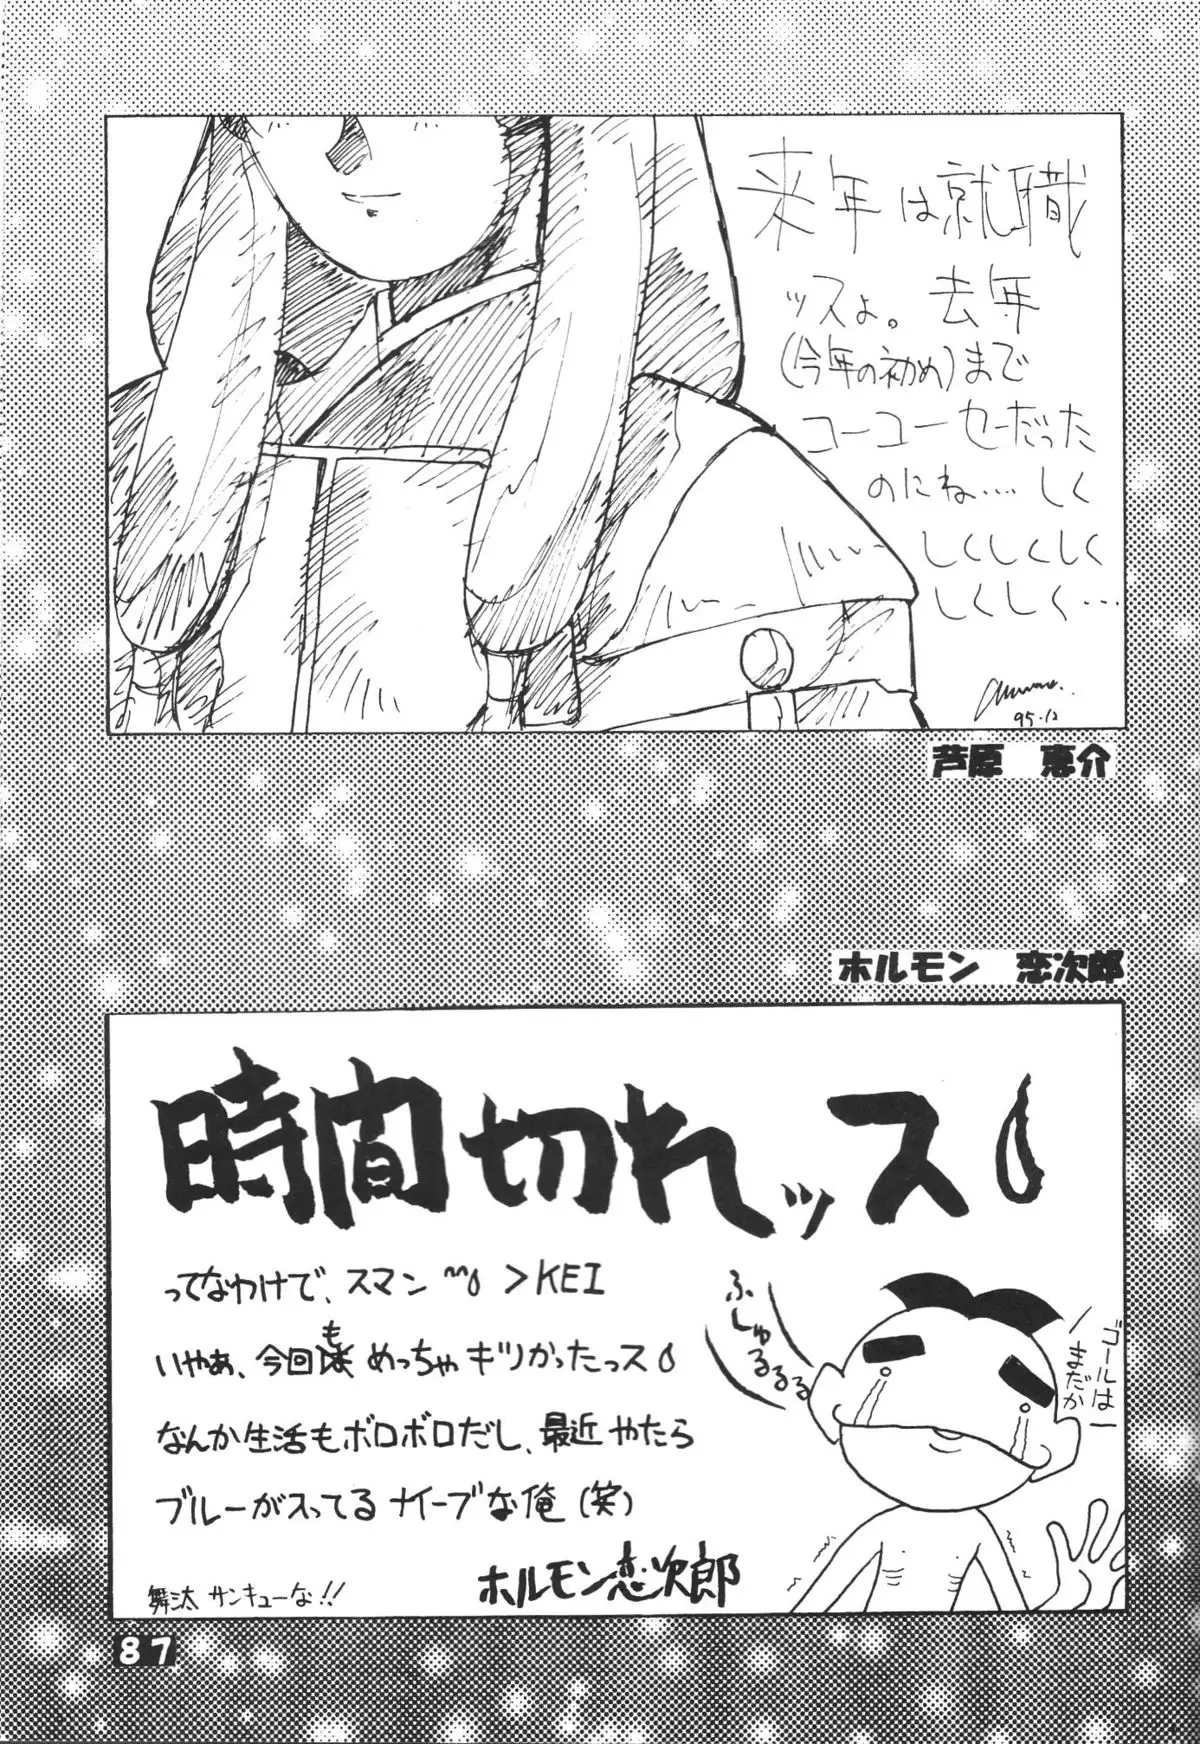 来年は就職
ッスよ。去年
(今年の初め)まで
コーコーセーだった
のにね‥‥しく
しくしくしく
しくしく…
95.12
芦原 恵介
ホルモン 恋次郎
時間切れッス
ってなわけで、スマン >KEI
いやぁ、今回も めっちゃキツかったっス
なんか生活もボロボロだし、最近やたら
ブルーが入ってるナイーブな俺(笑)
ホルモン恋次郎
舞汰 サンキューな!!
ふしゅるるるる
ゴールは
まだか
87